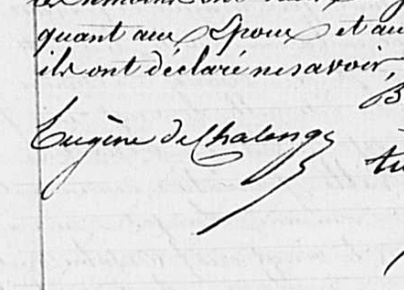 quant aux Epoux et au
ils ont déclaré ne savoir,
B
Eugène de Chalenge
tu